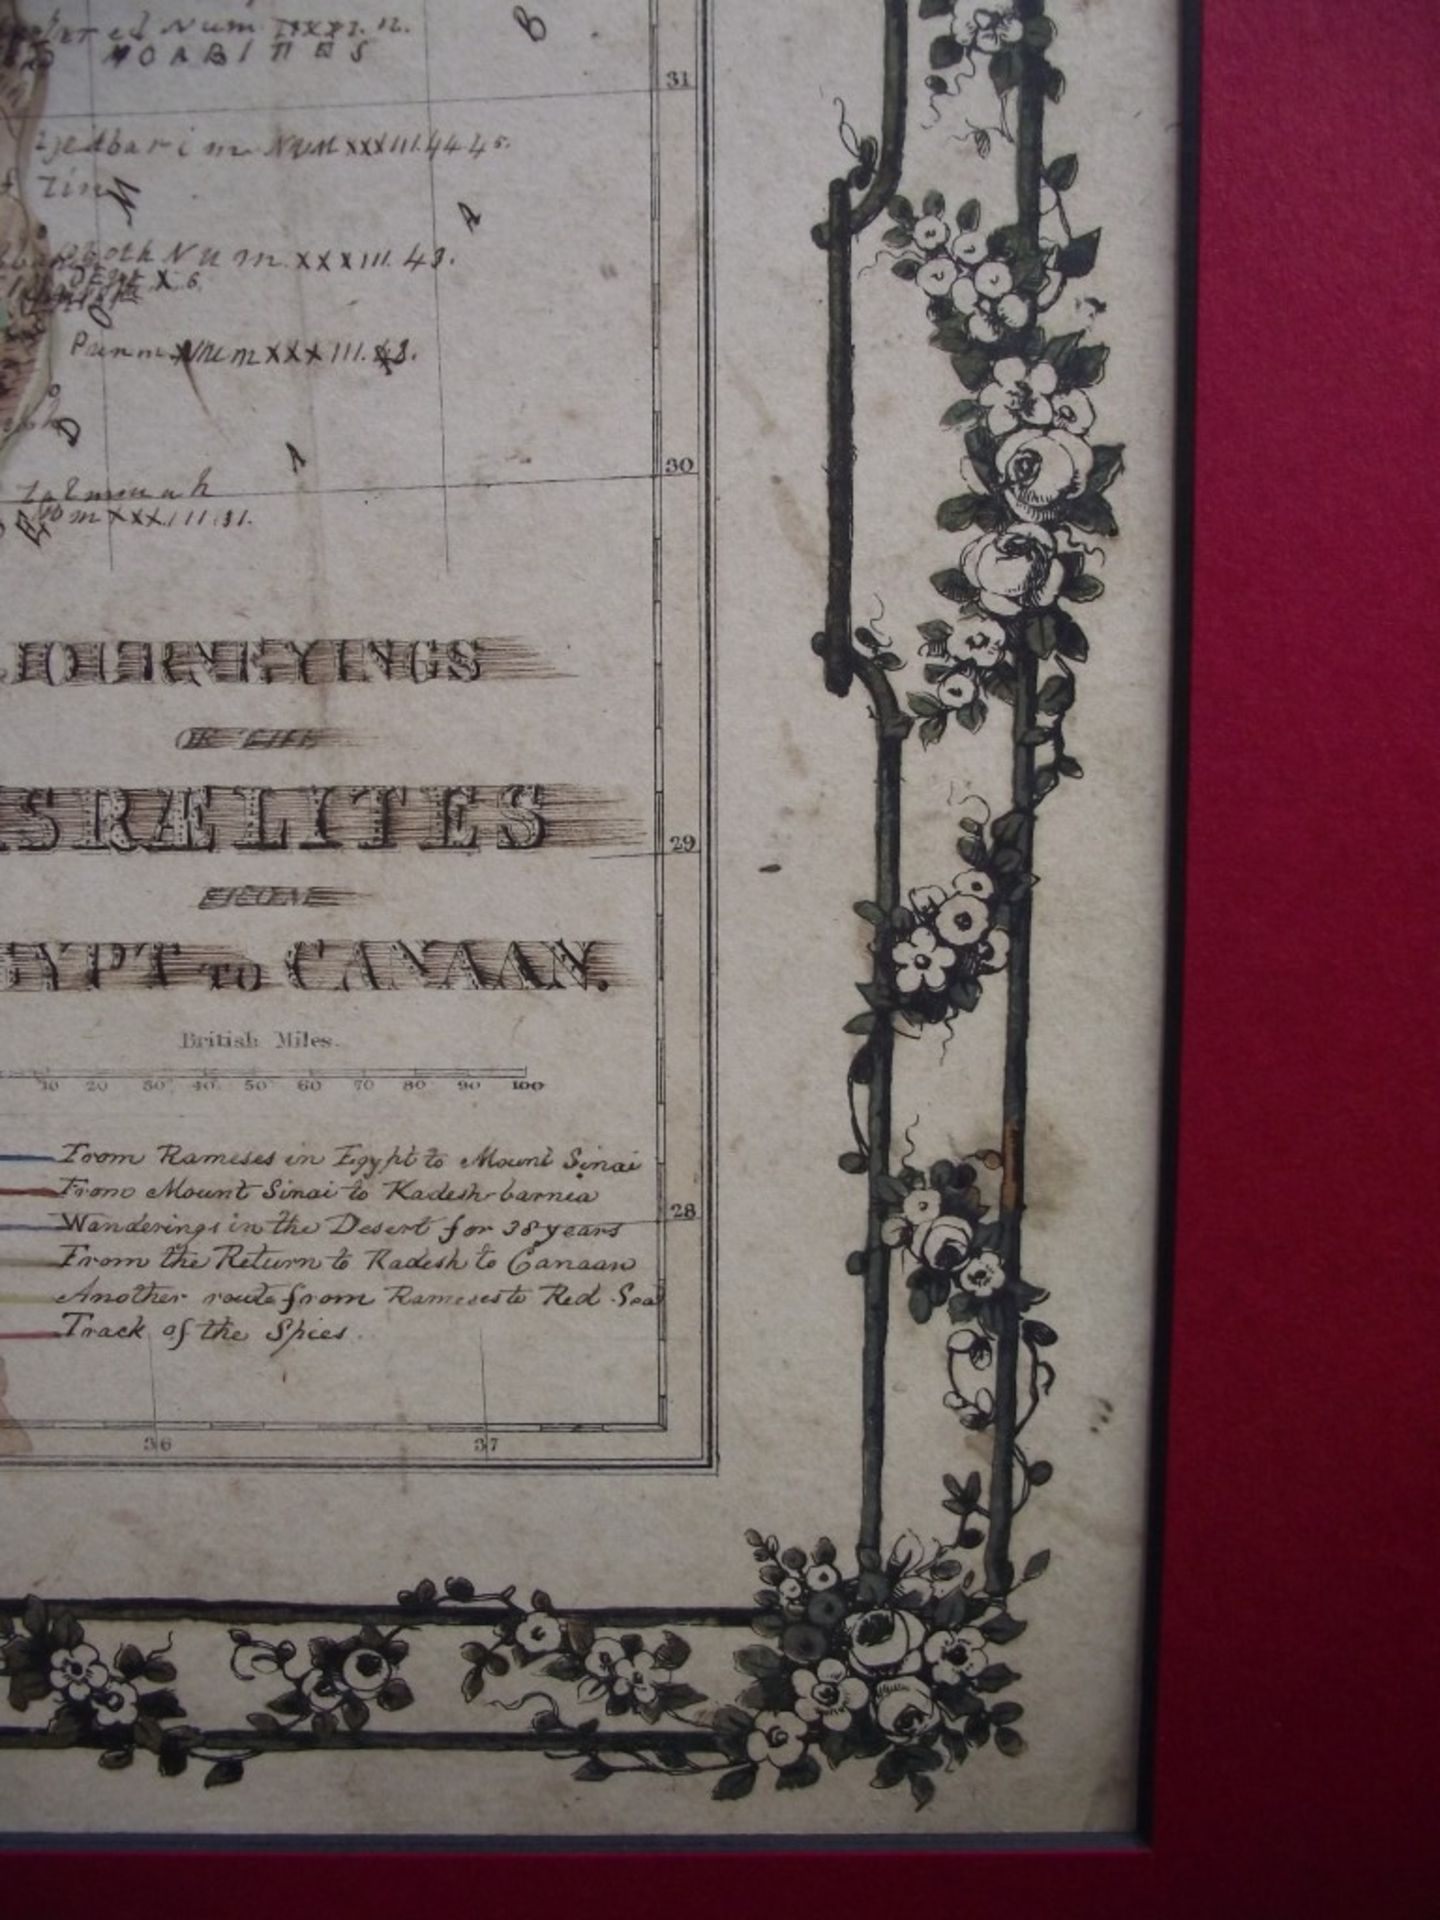 Num XXXI. 12.
MOABITES
B
31
Ijeabarim NUM XXXIII. 44 45.
f Zin
M
A
Num XXXIII. 43.
X 6
O
Punm Num XXXIII. 43.
D
A
30
Zalmonah
Num XXXIII. 31.
R
JOURNEYINGS
OF THE
ISRÆLITES
29
FROM
EGYPT TO CANAAN.
British Miles.
10 20 30 40 50 60 70 80 90 100
From Rameses in Egypt to Mount Sinai
From Mount Sinai to Kadesh-barnia
Wanderings in the Desert for 38 years
28
From the Return to Kadesh to Canaan
Another route from Rameses to Red Sea
Track of the Spies.
36 37